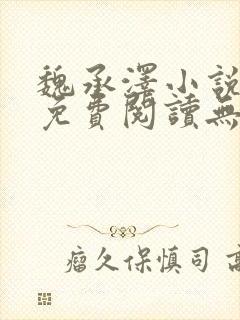 魏承澤小說
免費閱讀無
瘤久保慎司 高